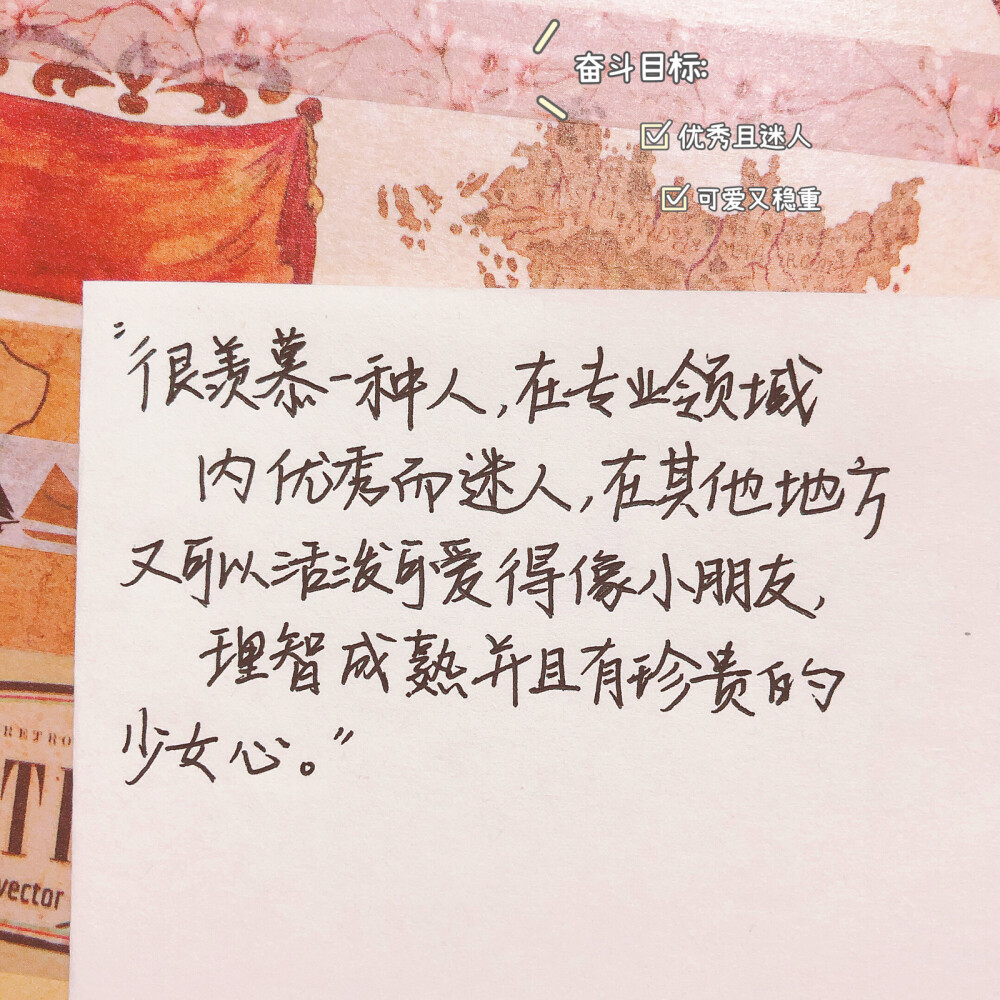 奋斗目标:
优秀且迷人
可爱又稳重
"很羡慕一种人,在专业领域
内优秀而迷人,在其他地方
又可以活泼可爱得像小朋友,
理智成熟并且有珍贵的
少女心。"
RETRO
vector